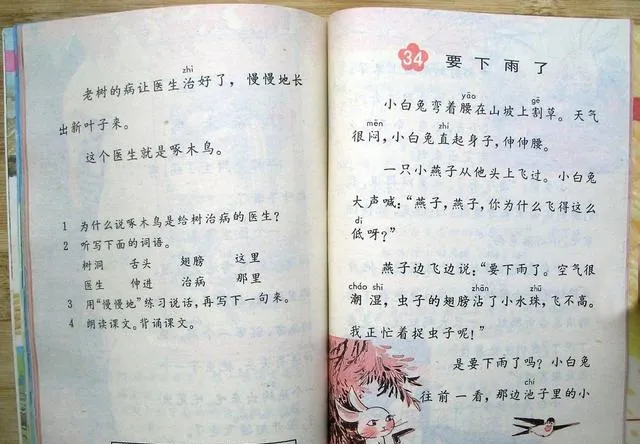 zhì
老树的病让医生治好了，慢慢地长
出新叶子来。
这个医生就是啄木鸟。
1 为什么说啄木鸟是给树治病的医生？
2 听写下面的词语。
树洞 舌头 翅膀 这里
医生 伸进 治病 那里
3 用“慢慢地”练习说话，再写下一句来。
4 朗读课文。背诵课文。
34 要下雨了
yāo gē
小白兔弯着腰在山坡上割草。天气
mēn zhí
很闷，小白兔直起身子，伸伸腰。
一只小燕子从他头上飞过。小白兔
大声喊：“燕子，燕子，你为什么飞得这么
dī
低呀？”
燕子边飞边说：“要下雨了。空气很
cháo shī zhān zhū
潮湿，虫子的翅膀沾了小水珠，飞不高。
我正忙着捉虫子呢！”
是要下雨了吗？小白兔
chí
往前一看，那边池子里的小